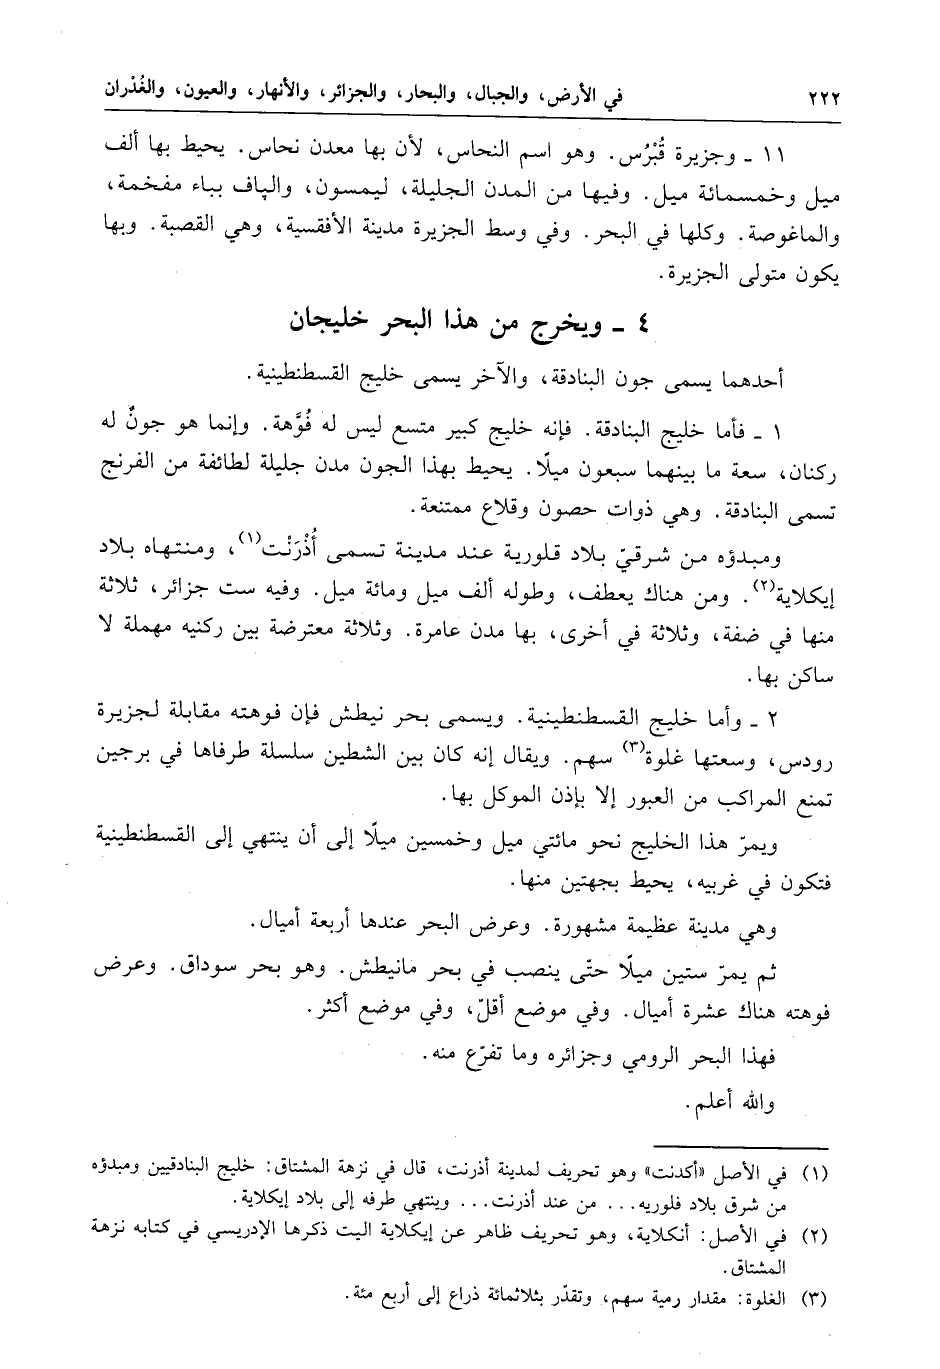 ٢٢٢ في الأرض، والجبال، والبحار، والجزائر، والأنهار، والعيون، والغُدْران
١١ ـ وجزيرة قُبْرُس. وهو اسم النحاس، لأن بها معدن نحاس. يحيط بها ألف
ميل وخمسمائة ميل. وفيها من المدن الجليلة، ليمسون، والپاف بباء مفخمة،
والماغوصة. وكلها في البحر. وفي وسط الجزيرة مدينة الأفقسية، وهي القصبة. وبها
يكون متولى الجزيرة.
٤ ـ ويخرج من هذا البحر خليجان
أحدهما يسمى جون البنادقة، والآخر يسمى خليج القسطنطينية.
١ ـ فأما خليج البنادقة. فإنه خليج كبير متسع ليس له فُوَّهة. وإنما هو جونٌ له
ركنان، سعة ما بينهما سبعون ميلًا. يحيط بهذا الجون مدن جليلة لطائفة من الفرنج
تسمى البنادقة. وهي ذوات حصون وقلاع ممتنعة.
ومبدؤه من شرقيّ بلاد قلورية عند مدينة تسمى أُذْرَنْت(١)، ومنتهاه بلاد
إيكلاية(٢). ومن هناك يعطف، وطوله ألف ميل ومائة ميل. وفيه ست جزائر، ثلاثة
منها في ضفة، وثلاثة في أخرى، بها مدن عامرة. وثلاثة معترضة بين ركنيه مهملة لا
ساكن بها.
٢ ـ وأما خليج القسطنطينية. ويسمى بحر نيطش فإن فوهته مقابلة لجزيرة
رودس، وسعتها غلوة(٣) سهم. ويقال إنه كان بين الشطين سلسلة طرفاها في برجين
تمنع المراكب من العبور إلا بإذن الموكل بها.
ويمرّ هذا الخليج نحو مائتي ميل وخمسين ميلًا إلى أن ينتهي إلى القسطنطينية
فتكون في غربيه، يحيط بجهتين منها.
وهي مدينة عظيمة مشهورة. وعرض البحر عندها أربعة أميال.
ثم يمرّ ستين ميلًا حتّى ينصب في بحر مانيطش. وهو بحر سوداق. وعرض
فوهته هناك عشرة أميال. وفي موضع أقلّ، وفي موضع أكثر.
فهذا البحر الرومي وجزائره وما تفرّع منه.
والله أعلم.
(١) في الأصل «أكدنت» وهو تحريف لمدينة أذرنت، قال في نزهة المشتاق: خليج البنادقيين ومبدؤه
من شرق بلاد فلوريه... من عند أذرنت... وينتهي طرفه إلى بلاد إيكلاية.
(٢) في الأصل: أنكلاية، وهو تحريف ظاهر عن إيكلاية اليت ذكرها الإدريسي في كتابه نزهة
المشتاق.
(٣) الغلوة: مقدار رمية سهم، وتقدّر بثلاثمائة ذراع إلى أربع مئة.